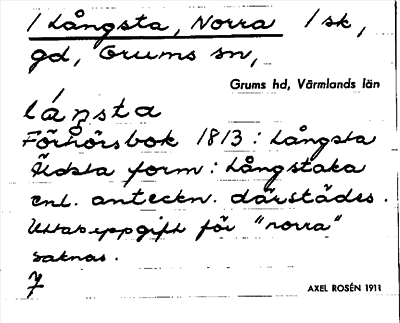 / Långsta, Norra / sk,
gd, Grums sn,
Grums hd, Värmlands län
lånsta
Förhörsbok 1813: Långsta
Äldsta form: Långstaka
enl. anteckn. därstädes.
Uttalsuppgift för "norra"
saknas.
AXEL ROSÉN 1911